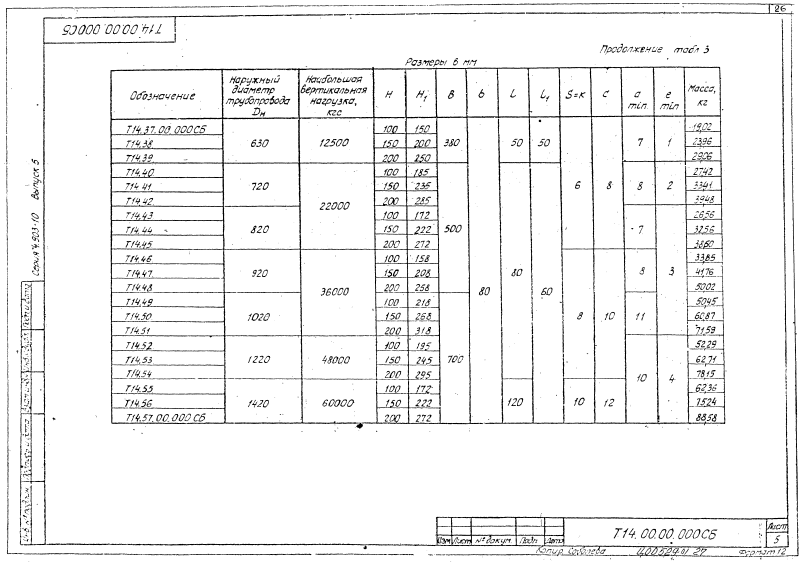 26
Т14.00.00.000СБ
Продолжение табл 3
Размеры в мм
Обозначение | Наружный диаметр трубопровода Dн | Наибольшая вертикальная нагрузка, кгс | H | H1 | B | b | L | L1 | S=K | c | a min | e min | Масса, кг
Т14.37.00.000СБ | 630 | 12500 | 100 | 150 | 380 | 80 | 50 | 50 | 6 | 8 | 7 | 1 | 19,02
Т14.38 | 150 | 200 | 23,96
Т14.39 | 200 | 250 | 29,06
Т14.40 | 720 | 22000 | 100 | 185 | 500 | 80 | 60 | 8 | 2 | 27,42
Т14.41 | 150 | 235 | 33,41
Т14.42 | 200 | 285 | 39,48
Т14.43 | 820 | 100 | 172 | 7 | 3 | 26,56
Т14.44 | 150 | 222 | 32,56
Т14.45 | 200 | 272 | 38,60
Т14.46 | 920 | 36000 | 100 | 158 | 8 | 10 | 8 | 33,85
Т14.47 | 150 | 208 | 41,76
Т14.48 | 200 | 258 | 50,02
Т14.49 | 1020 | 100 | 218 | 700 | 11 | 50,45
Т14.50 | 150 | 268 | 60,87
Т14.51 | 200 | 318 | 71,59
Т14.52 | 1220 | 48000 | 100 | 195 | 10 | 4 | 52,29
Т14.53 | 150 | 245 | 62,71
Т14.54 | 200 | 295 | 78,15
Т14.55 | 1420 | 60000 | 100 | 172 | 120 | 10 | 12 | 62,36
Т14.56 | 150 | 222 | 75,24
Т14.57.00.000СБ | 200 | 272 | 88,58
Серия 4.903-10 Выпуск 5
Изм Лист № докум. Подп Дата
Т14.00.00.000СБ
Лист
5
Копир. Соболева
Ц00529-01 27
Формат 12